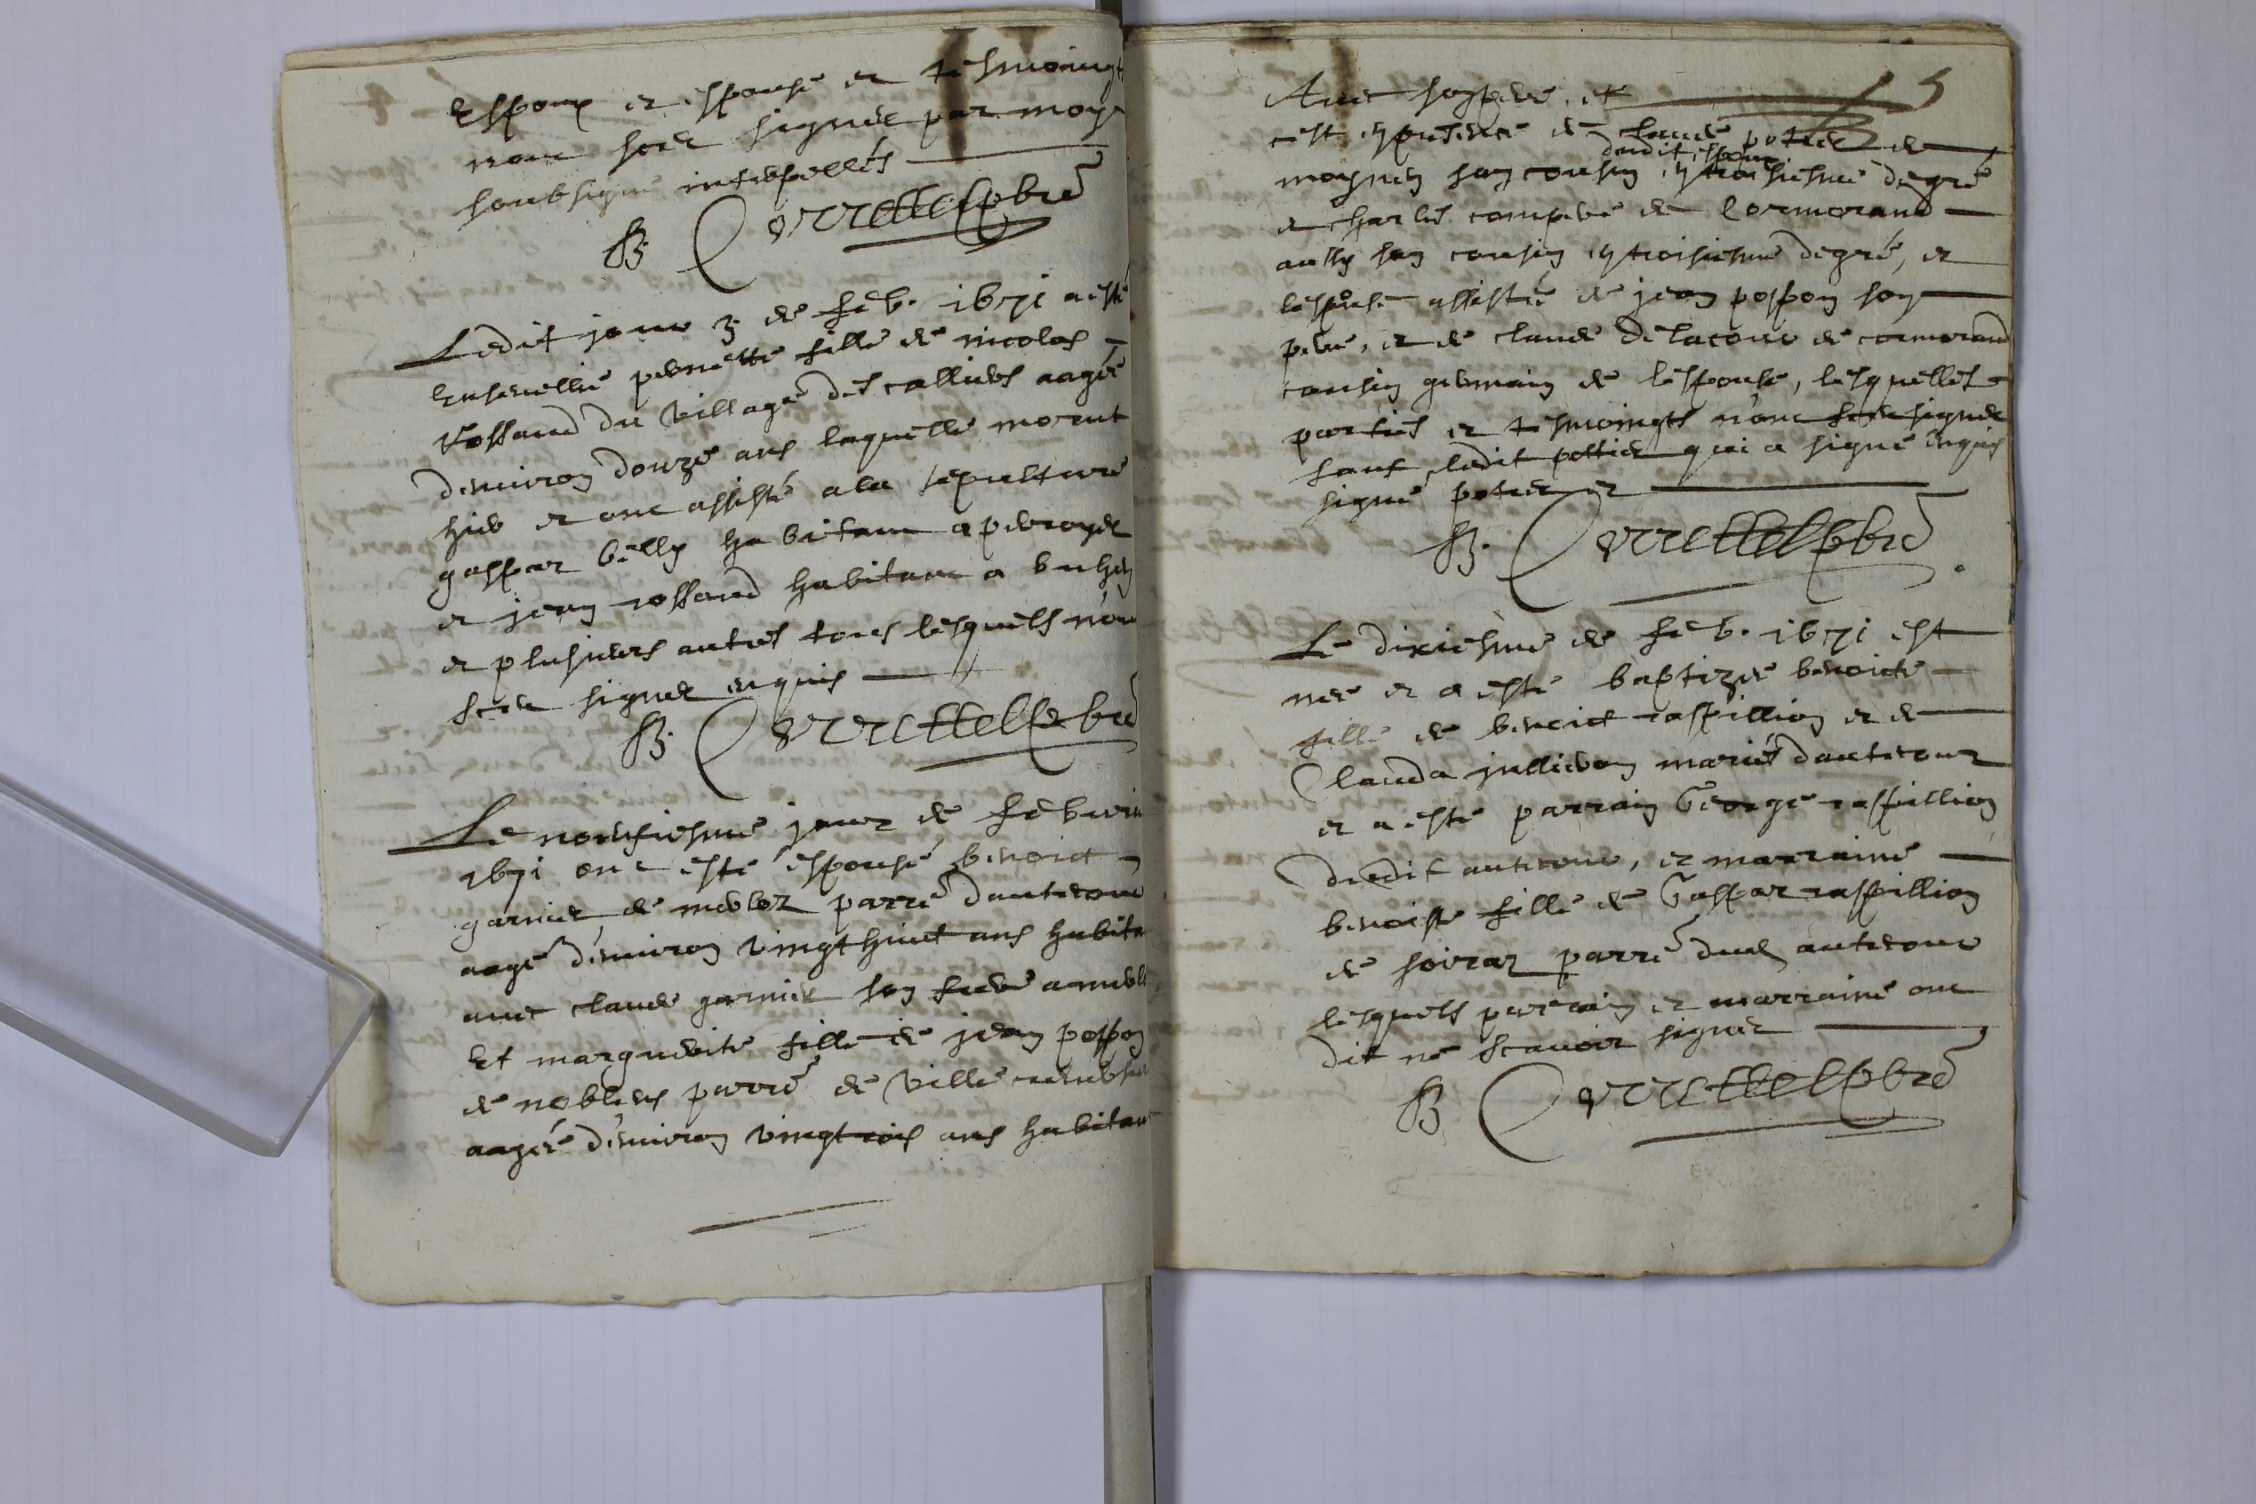 Espoux et espouse et tesmoingts
n'ont sceu signer par moy
soubsigné interpellés
B. Correttel pbre
Ledit jour 3 de feb. 1671 a esté
ensevellie pernette fille de nicolas
rossand du village des calliers aagée
d'environ douze ans laquelle morut
hier et ont assisté a la sepulture
gaspar billy habitant a peroyer
et jean rossand habitant a
et plusieurs autres tous lesquels n'ont
sceu signer enquis
B. Correttel pbre
Le noufiesme jour de febvrier
1671 ont esté espousé benoict
garnier de parre d'autecour
aagé d'environ vingthuict ans habitant
avec claude garnier son frere
Et marguerite fille de jean pospon
de noblens parre de ville
aagée d'environ vingtrois ans habitant
5
Avec son pere, et
c'est en presence de claude potier de
dudit espoux
son cousin en troisiesme degré
et charles compere de cormorand
aussy son cousin en troisiesme degré, et
l'espouse assistée de jean pospon son
pere, et de claude delacour de cormorand
cousin germain de l'espouse, lesquelles
parties et tesmoingts n'ont sceu signer
sauf ledit pottier qui a signé enquis
signé potier et
B. Correttel pbre
Le dixiesme de feb. 1671 est
née et a esté baptizée benoicte
fille de benoict raspillion et de
Clauda jullieron mariés d'autecour
et a esté parrain George raspillion
dudit autecour, et marraine
benoiste fille de Gaspar raspillion
de soiraz parre dud autecour
lesquels parrain et marraine ont
dit ne scavoir signer
B. Correttel pbre